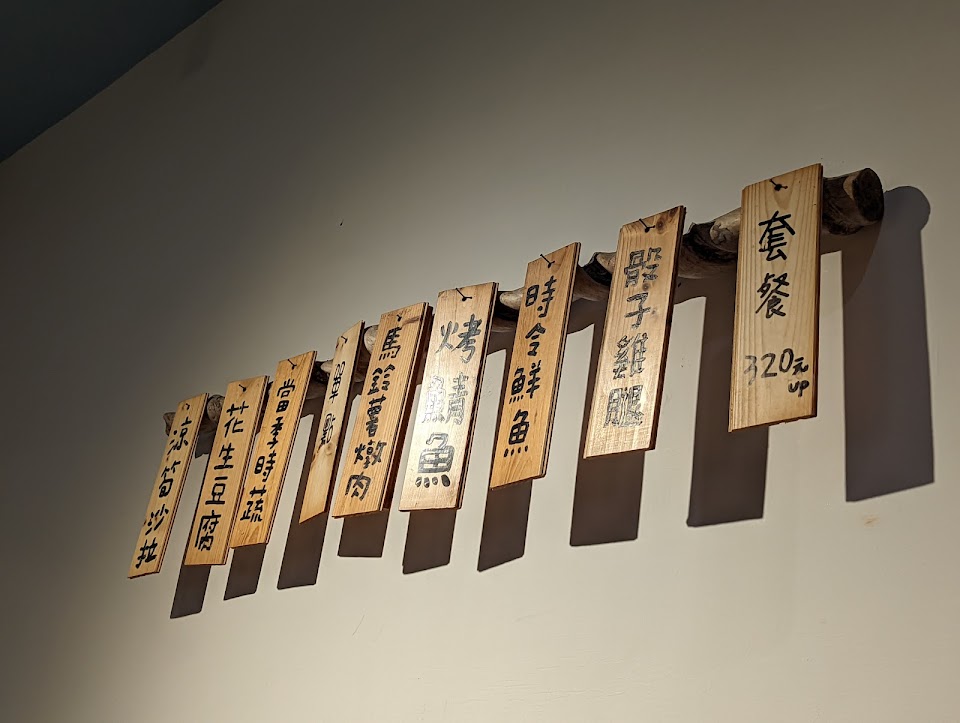 套餐
320元
up
骰子雞腿
時令鮮魚
烤鯖魚
馬鈴薯燉肉
單點
當季時蔬
花生豆腐
涼筍沙拉